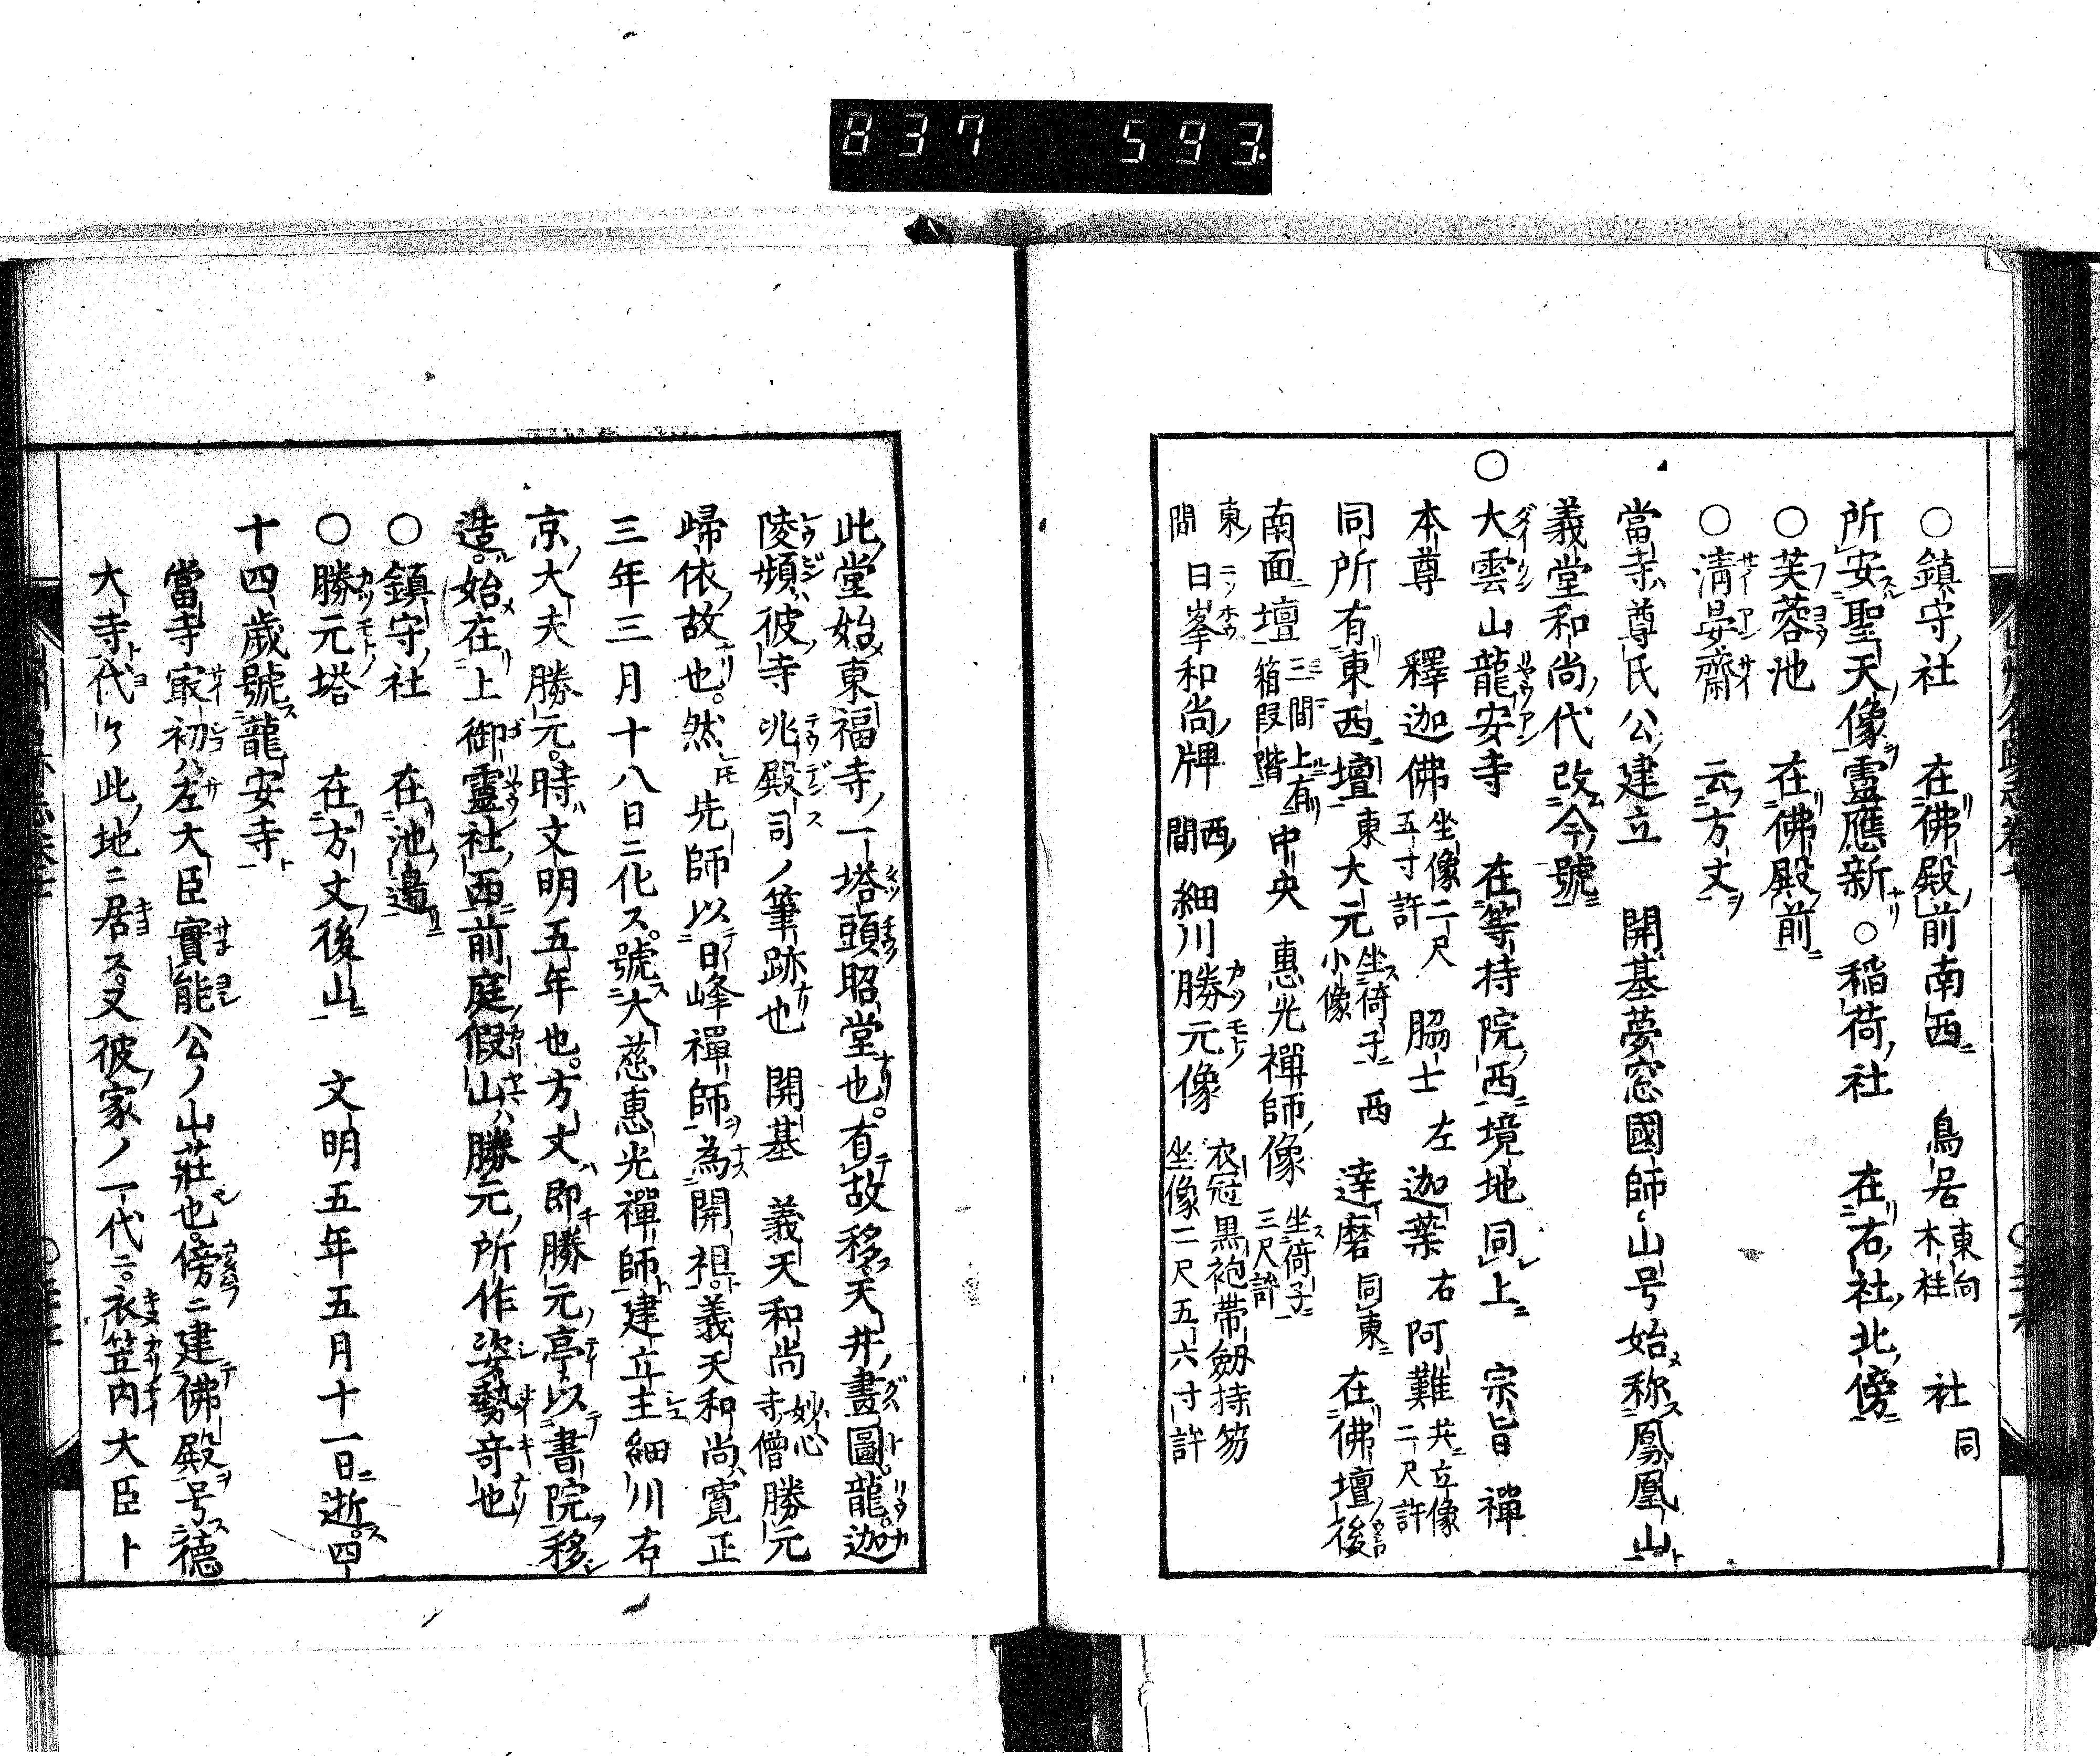 837 593
○鎮守社 在佛殿前南西 鳥居 東向木柱 社 同
所安聖天像靈應新 ○稲荷社 在右社北傍
○芙蓉池 在佛殿前
○淸晏齋 云方丈
當寺尊氏公建立 開基夢窓國師山号始称鳳凰山
義堂和尚代改今號
○大雲山龍安寺 在等持院西境地同上 宗旨禪
本尊 釋迦佛 坐像二尺五寸許 脇士 左 迦葉 右 阿難 共立像二尺許
同所有東西壇 東 大元 坐倚子小像 西 達磨 同東 在佛壇後
南面壇 三間上有箱段階 中央 惠光禪師像 坐倚子三尺許
東間 日峯和尚牌 西間 細川勝元像 衣冠黒袍帯劔持笏坐像二尺五六寸許
此堂始東福寺ノ一塔頭昭堂也。有故移天井畫圖龍迦
陵頻彼寺兆殿司ノ筆跡也 開基 義天和尚 妙心寺僧 勝元
歸依故也。然先師以日峰禪師為開祖。義天和尚寛正
三年三月十八日ニ化ス。號大慈惠光禪師建立主細川右
京大夫勝元。時文明五年也。方丈即勝元亭以書院移
造。始在上御靈社西前庭假山勝元所作姿勢奇也
○鎮守社 在池邉
○勝元塔 在方丈後山 文明五年五月十一日逝。四
十四歳號龍安寺
當寺最初ハ左大臣實能公ノ山荘也。傍ニ建佛殿号德
大寺代々此地ニ居ス。又彼家ノ一代ニ。衣笠内大臣ト